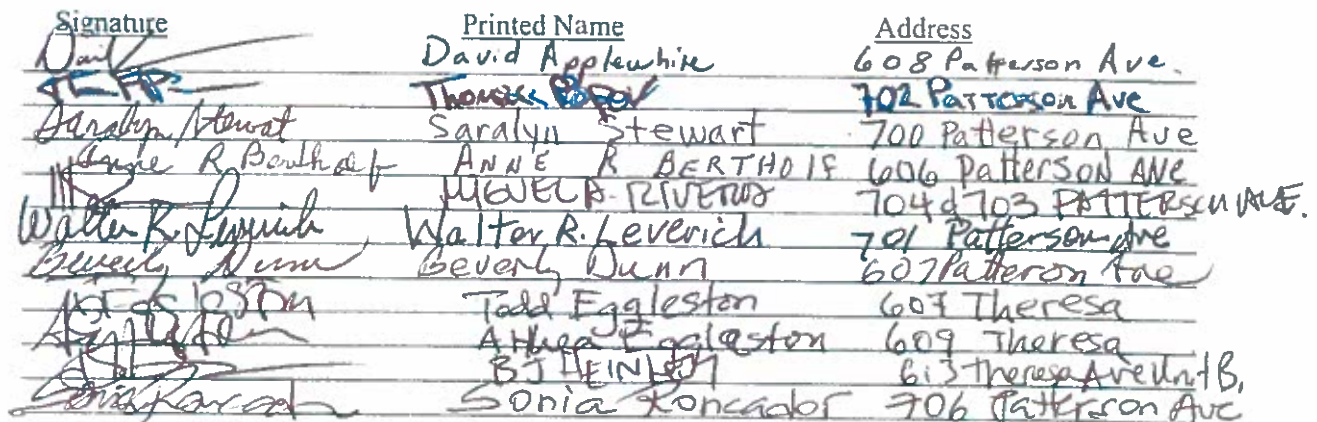 Signature Printed Name Address
David Applewhite 608 Patterson Ave.
Thomas 702 Patterson Ave
Saralyn Stewart Saralyn Stewart 700 Patterson Ave
Anne R Bertholf ANNE R BERTHOLF 606 Patterson AVE
MIGUEL A. RIVERA 704 d 703 PATTERSON AVE.
Walter R. Leverich Walter R. Leverich 701 Patterson Ave
Beverly Dunn Beverly Dunn 607 Patteron Ave
Todd Eggleston 607 Theresa
Eggleston 609 Theresa
BJ 613 Theresa Ave Unit B,
Sonia Roncador Sonia Roncador 706 Patterson Ave